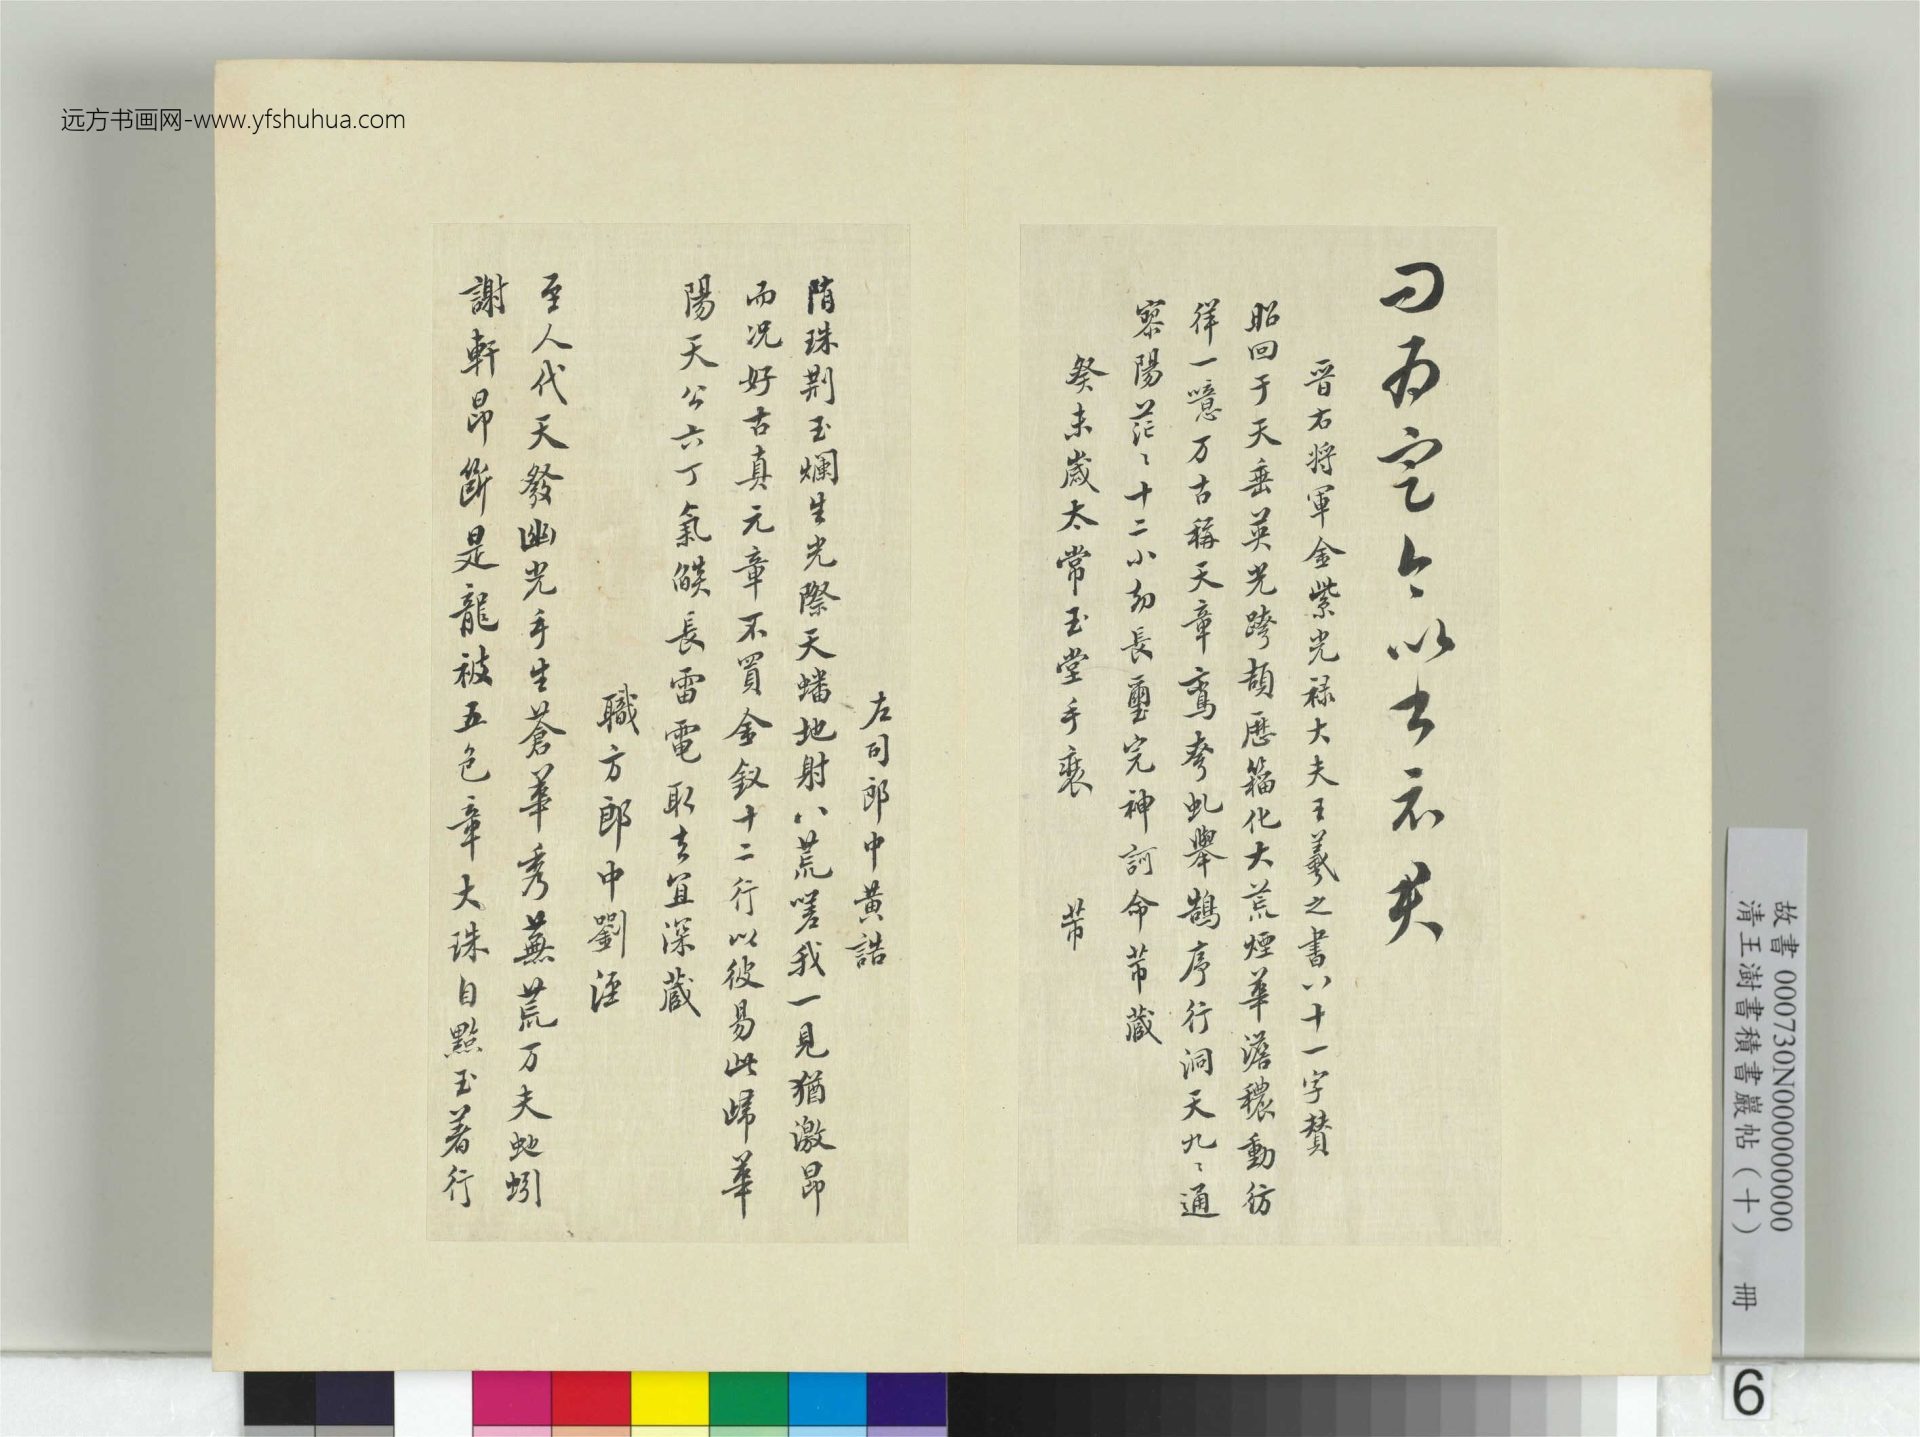 远方书画网-www.yfshuhua.com
晉右将軍金紫光祿大夫王羲之書八十一字贊
昭回于天垂英光跨頡歷籀化大荒煙華澹穠動彷
徉一噫万古稱天章鸞夸虬舉鵠序行洞天九〻通
寥陽茫〻十二小劫長璽完神訶命芾藏
癸未歲太常玉堂手裝 芾
左司郎中黄誥
隋珠荆玉爛生光際天蟠地射八荒嗟我一見猶激昂
而况好古真元章不買金釵十二行以彼易此歸華
陽天公六丁氣燄長雷電取去宜深藏
職方郎中劉涇
至人代天發幽光手生蒼華秀蕪荒万夫蚍蚓
謝軒昂斷是龍被五色章大珠自點玉著行
故書 000730N000000000
清王澍書積書巖帖（十） 冊
6